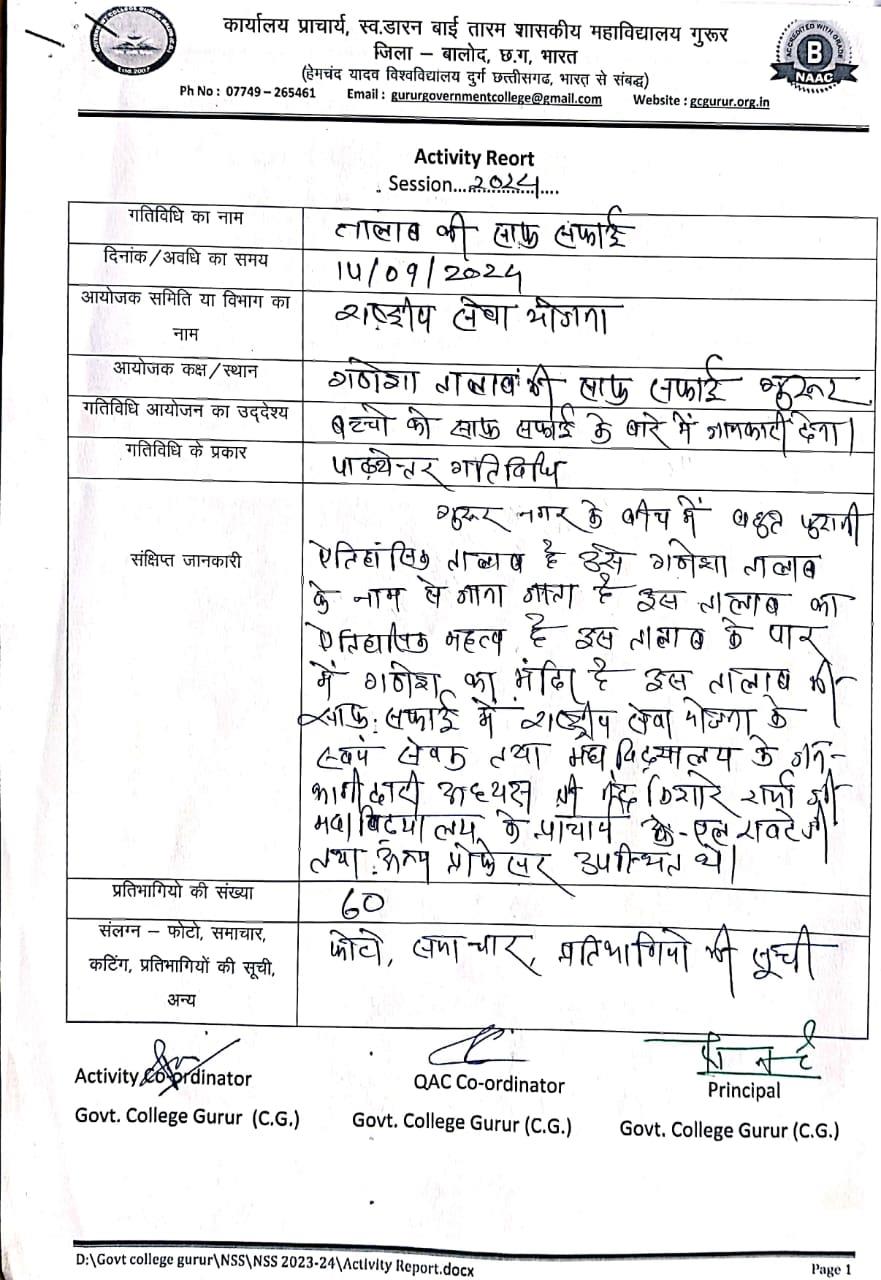 कार्यालय प्राचार्य, स्व.डारन बाई तारम शासकीय महाविद्यालय गुरूर
जिला – बालोद, छ.ग, भारत
(हेमचंद यादव विश्वविद्यालय दुर्ग छत्तीसगढ, भारत से संबद्ध)
Ph No : 07749 – 265461 Email : gururgovernmentcollege@gmail.com Website : gcgurur.org.in
ACCREDITED WITH GRADE
B
NAAC
Activity Reort
Session...2024....
गतिविधि का नाम
तालाब की साफ सफाई
दिनांक/अवधि का समय
14/09/2024
आयोजक समिति या विभाग का
नाम
राष्ट्रीय सेवा योजना
आयोजक कक्ष/स्थान
गणेश तालाब की साफ सफाई गुरूर
गतिविधि आयोजन का उद्देश्य
बच्चो को साफ सफाई के बारे में जानकारी देना।
गतिविधि के प्रकार
पाठ्येत्तर गतिविधि
संक्षिप्त जानकारी
गुरूर नगर के बीच में बहुत पुरानी
ऐतिहासिक तालाब है इसे गणेश तालाब
के नाम से जाना जाता है इस तालाब का
ऐतिहासिक महत्व है इस तालाब के पार
में गणेश का मंदिर है इस तालाब की
साफ सफाई में राष्ट्रीय सेवा योजना के
स्वयं सेवक तथा महाविद्यालय के जन-
भागीदारी अध्यक्ष श्री किशोर शर्मा जी
महाविद्यालय के प्राचार्य के-एल रावटे जी
तथा अन्य प्रोफेसर उपस्थित थे।
प्रतिभागियो की संख्या
60
संलग्न – फोटो, समाचार,
कटिंग, प्रतिभागियों की सूची,
अन्य
फोटो, समाचार, प्रतिभागियो की सूची
Activity Co-ordinator QAC Co-ordinator Principal
Govt. College Gurur (C.G.) Govt. College Gurur (C.G.) Govt. College Gurur (C.G.)
D:\Govt college gurur\NSS\NSS 2023-24\Activity Report.docx Page 1